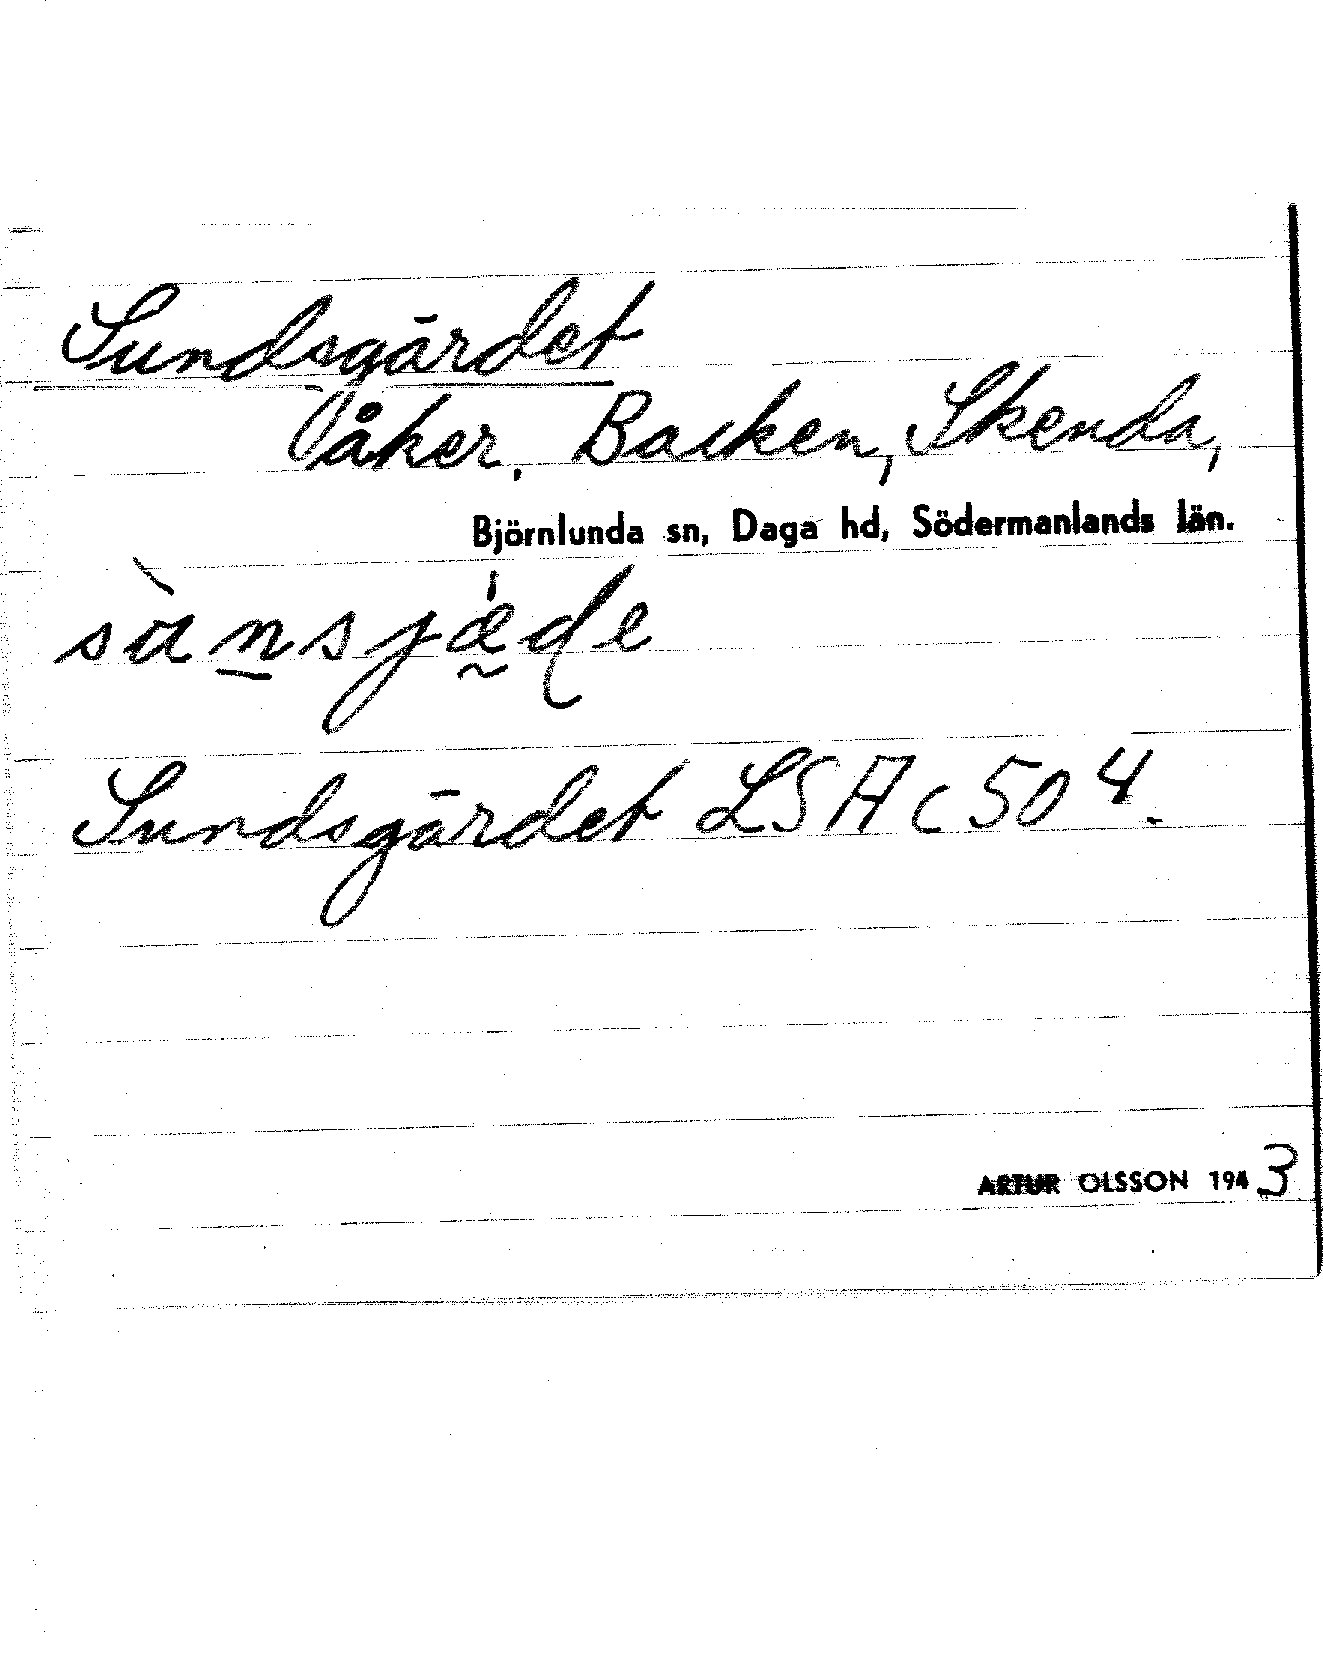 Sundsgärdet
åker. Backen, Skenda,
Björnlunda sn, Daga hd, Södermanlands län.
sùnsjæ̰de
Sundsgärdet LSA C 50 4.
ARTUR OLSSON 1943